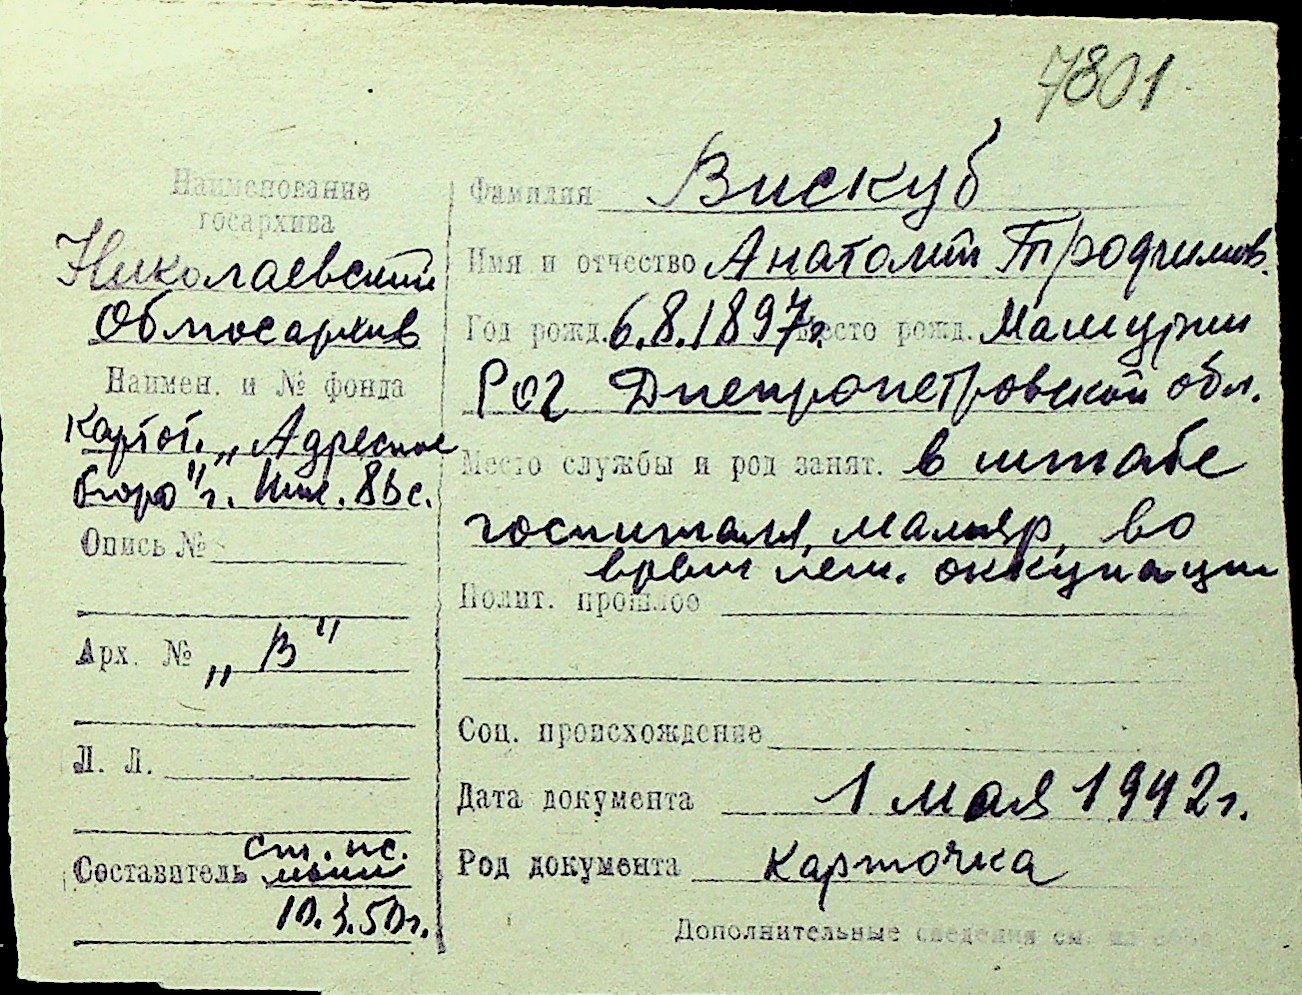 7801
Наименование
госархива
Николаевский
Облгосархив
Наимен. и № фонда
Картот. „Адресное
бюро" г. Ник. 8
Опись №
Арх. № „В"
Л. Л.
Составитель ст. нс.
10. 50 г.
Фамилия Вискуб
Имя и отчество Анатолий Трофимов.
Год рожд. 6.8.1897 г. Место рожд. Машурин
Рог Днепропетровской обл.
Место службы и род занят. в штабе
госпиталя, маляр, во
время нем. оккупации
Полит. прошлое
Соц. происхождение
Дата документа 1 мая 1942 г.
Род документа карточка
Дополнительные сведения см. на